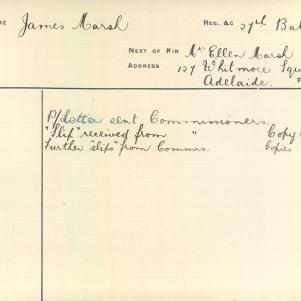 ME James Marsh REG. &C 27th Bat
NEXT OF KIN Mrs Ellen Marsh
ADDRESS 127 Whitmore Squ
Adelaide.
P/Letter sent Commissioners.
"Slip" received from " Copy
Further "slips" from Commrs. Copies